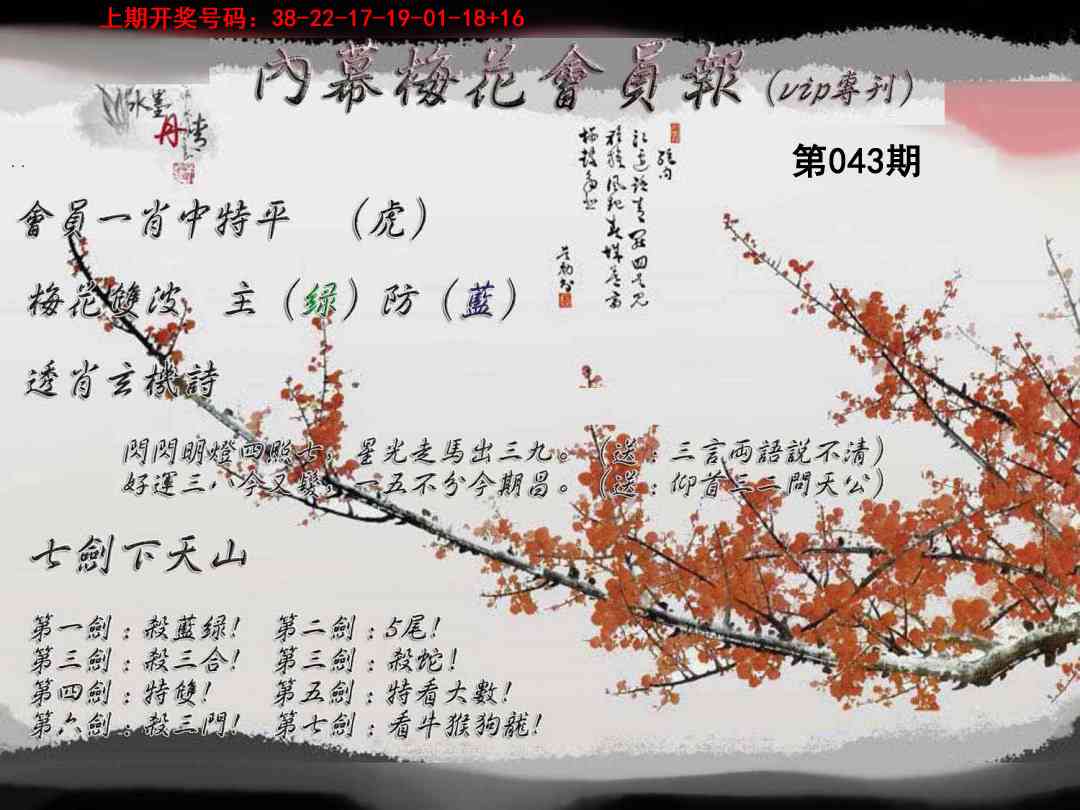 上期开奖号码：38-22-17-19-01-18+16
內幕梅花會員報（vip專刊）
水墨丹青
第043期
會員一肖中特平　（虎）
梅花雙波　主（绿）防（藍）
透肖玄機詩
閃閃明燈四照七，星光走馬出三九。（送：三言両語説不清）
好運三八今又發，一五不分今期昌。（送：仰首三二問天公）
七劍下天山
第一劍：殺藍绿！　第二劍：5尾！
第三劍：殺三合！　第三劍：殺蛇！
第四劍：特雙！　第五劍：特看大數！
第六劍：殺三門！　第七劍：看牛猴狗龍！